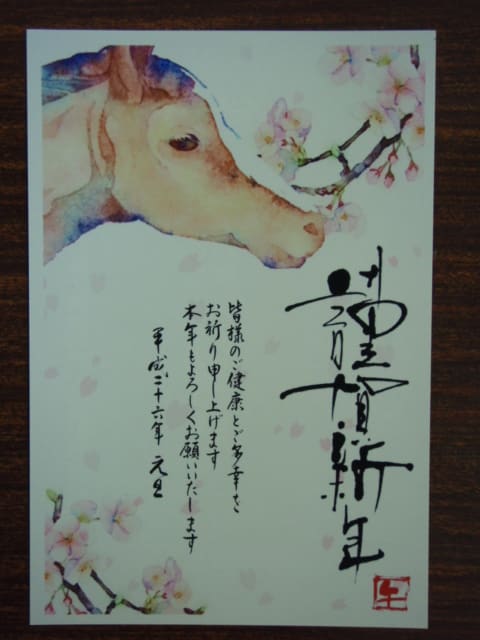 謹賀新年
皆様のご健康とご多幸を
お祈り申し上げます
本年もよろしくお願いいたします
平成二十六年 元旦